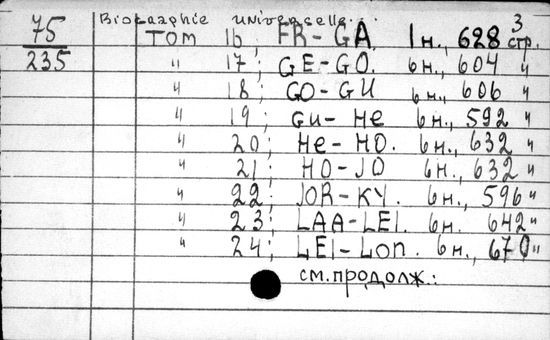 75 Biographie universelle... 3
235 Том 16, FR-GA. 1н., 628 стр.
" 17; GE-GO. 6н., 604 "
" 18; GO-GU 6н., 606 "
" 19; GU-HE 6н., 592 "
" 20; HE-HO. 6н., 632 "
" 21; HO-JO 6н., 632 "
" 22; JOR-KY. 6н., 596 "
" 23; LAA-LEI. 6н. 642 "
" 24; LEI-LON. 6н., 670 "
см. продолж.: